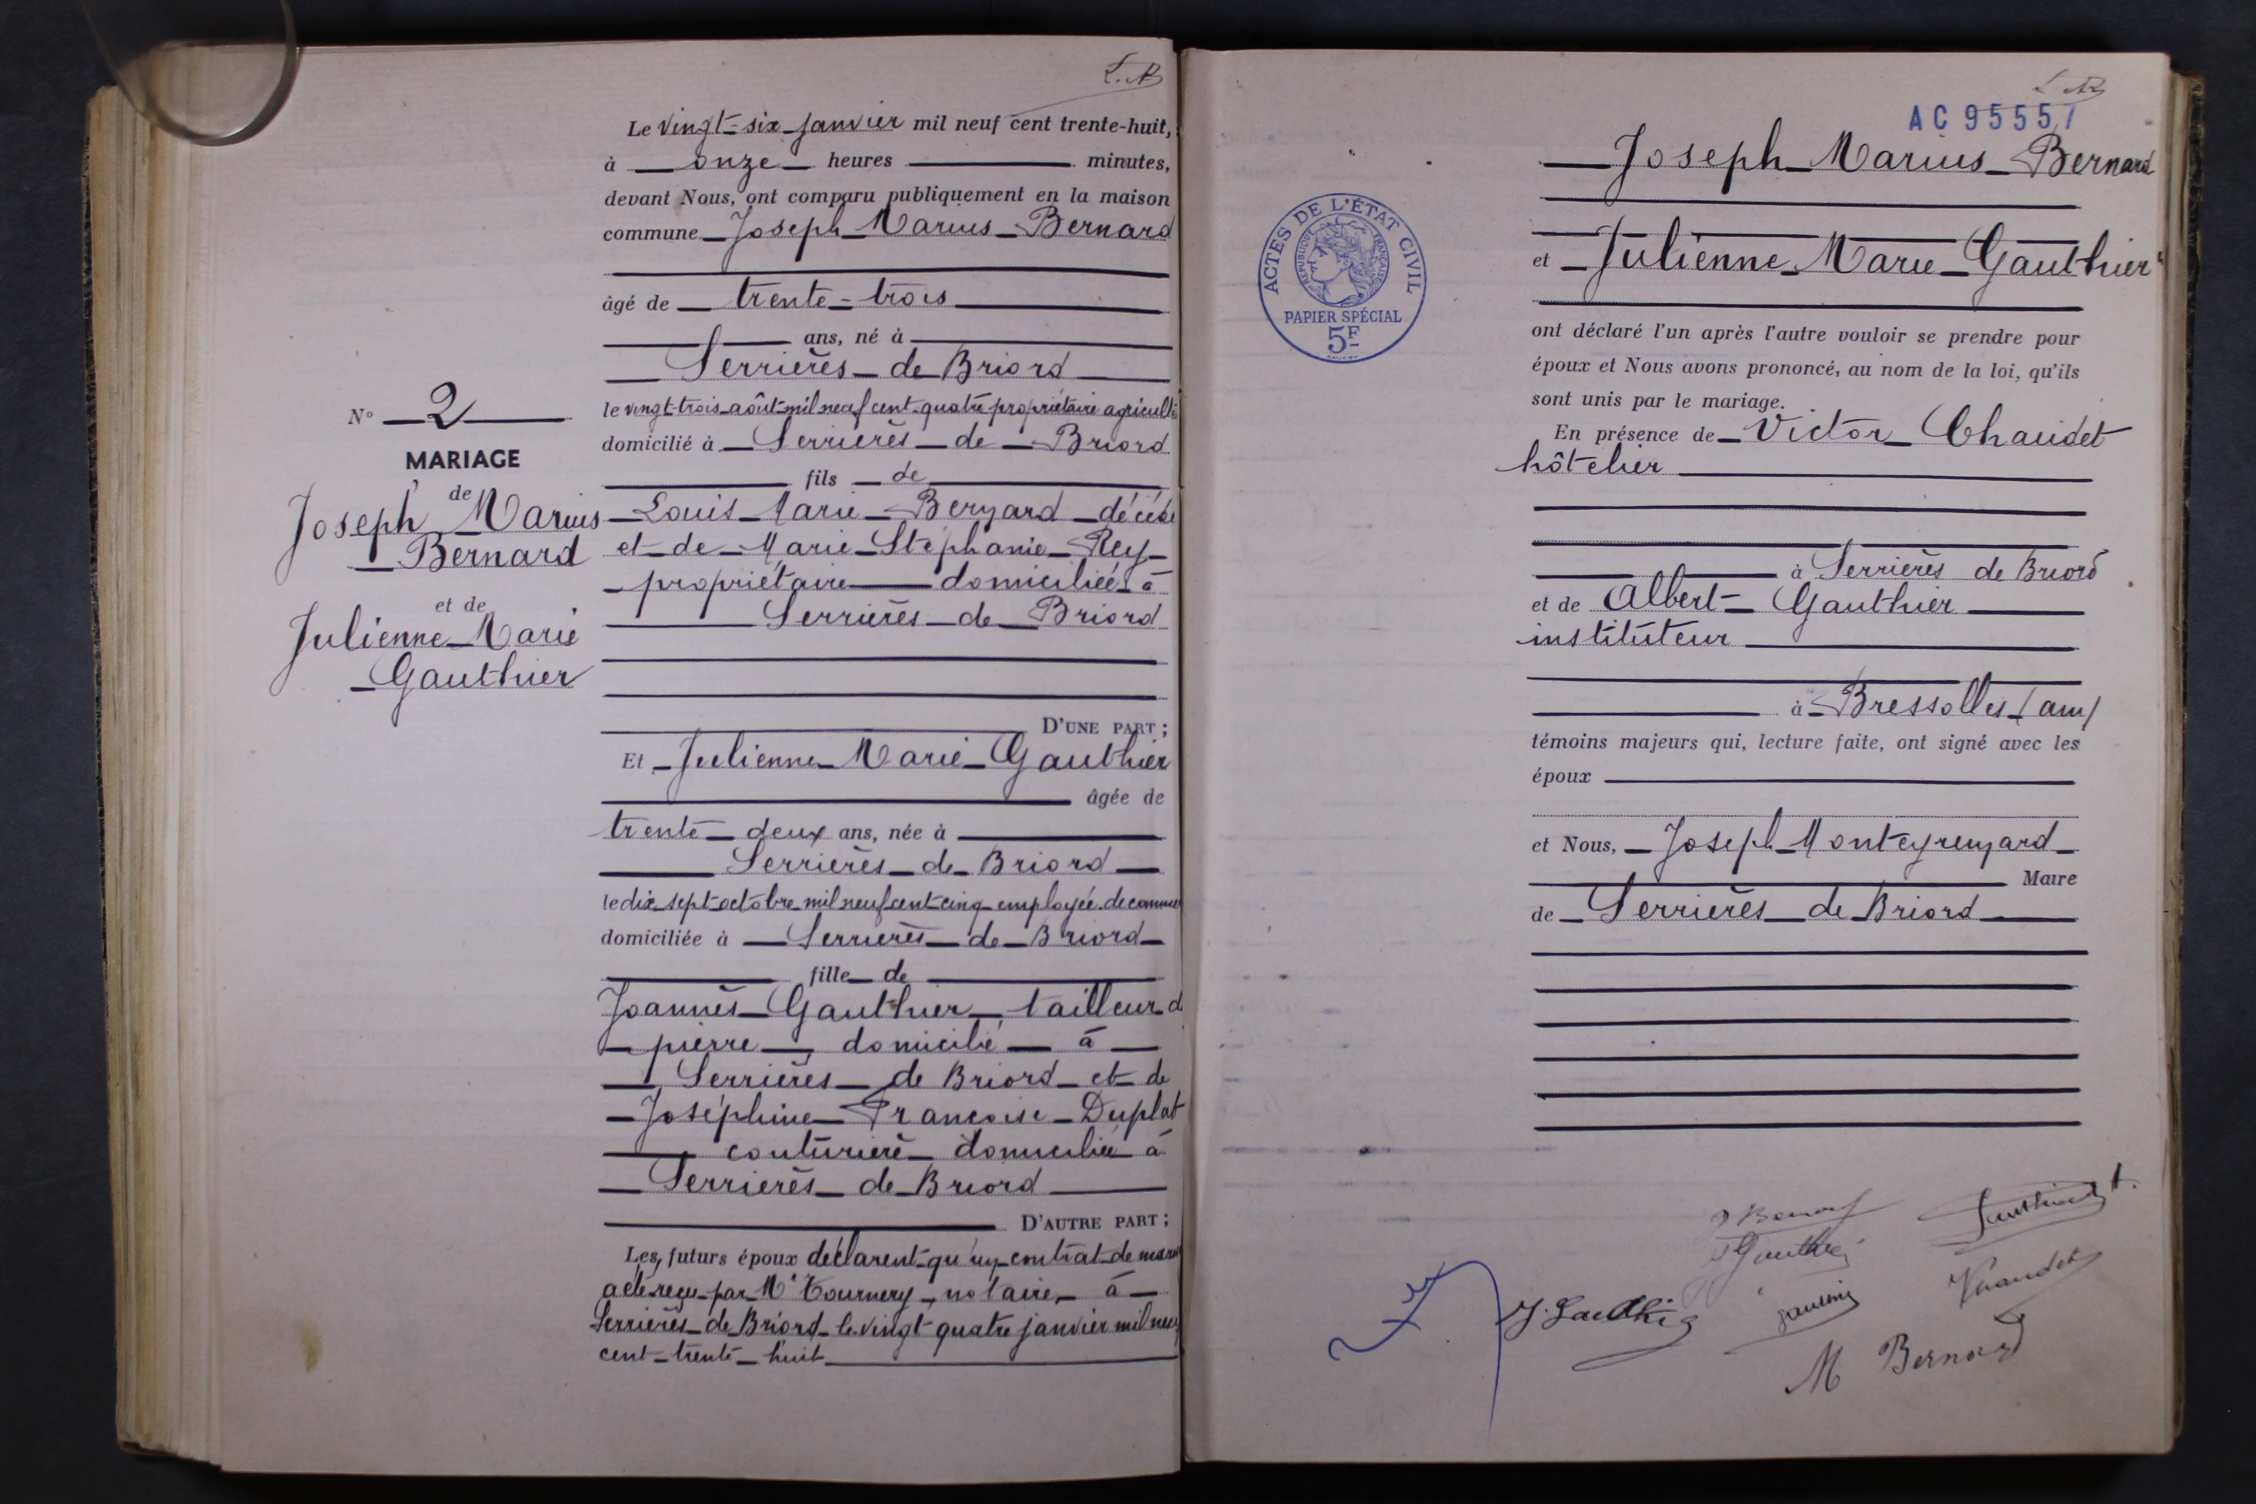 L. B
Le vingt-six janvier mil neuf cent trente-huit,
à onze heures minutes,
devant Nous, ont comparu publiquement en la maison
commune Joseph Marius Bernard
âgé de trente-trois
ans, né à
Serrières de Briord
le vingt-trois août mil neuf cent quatre propriétaire agricult
domicilié à Serrières de Briord
fils de
Louis Marie Bernard décédé
et de Marie Stéphanie Rey
propriétaire domiciliée à
Serrières de Briord
D'UNE PART ;
N° 2
MARIAGE
de
Joseph Marius
Bernard
et de
Julienne Marie
Gauthier
Et Julienne Marie Gauthier
âgée de
trente-deux ans, née à
Serrières de Briord
le dix-sept octobre mil neuf cent cinq employée de commer
domiciliée à Serrières de Briord
fille de
Joannès Gauthier tailleur d
pierre domicilié à
Serrières de Briord et de
Joséphine Françoise Duplat
couturière domiciliée à
Serrières de Briord
D'AUTRE PART ;
Les futurs époux déclarent qu'un contrat de maria
a été reçu par Me Tournery, notaire à
Serrières de Briord le vingt quatre janvier mil neuf
cent trente-huit
AC 95557
ACTES DE L'ÉTAT CIVIL
RÉPUBLIQUE FRANÇAISE
PAPIER SPÉCIAL
5F
Joseph Marius Bernard
et Julienne Marie Gauthier
ont déclaré l'un après l'autre vouloir se prendre pour
époux et Nous avons prononcé, au nom de la loi, qu'ils
sont unis par le mariage.
En présence de Victor Chaudet
hôtelier
à Serrières de Briord
et de Albert Gauthier
instituteur
à Bressolles (ain)
témoins majeurs qui, lecture faite, ont signé avec les
époux
et Nous, Joseph Monteyremard
Maire
de Serrières de Briord
J Bernard
Gauthier A.
J Gauthier
Chaudet
J. Gauthier
Gauthier
M Bernard